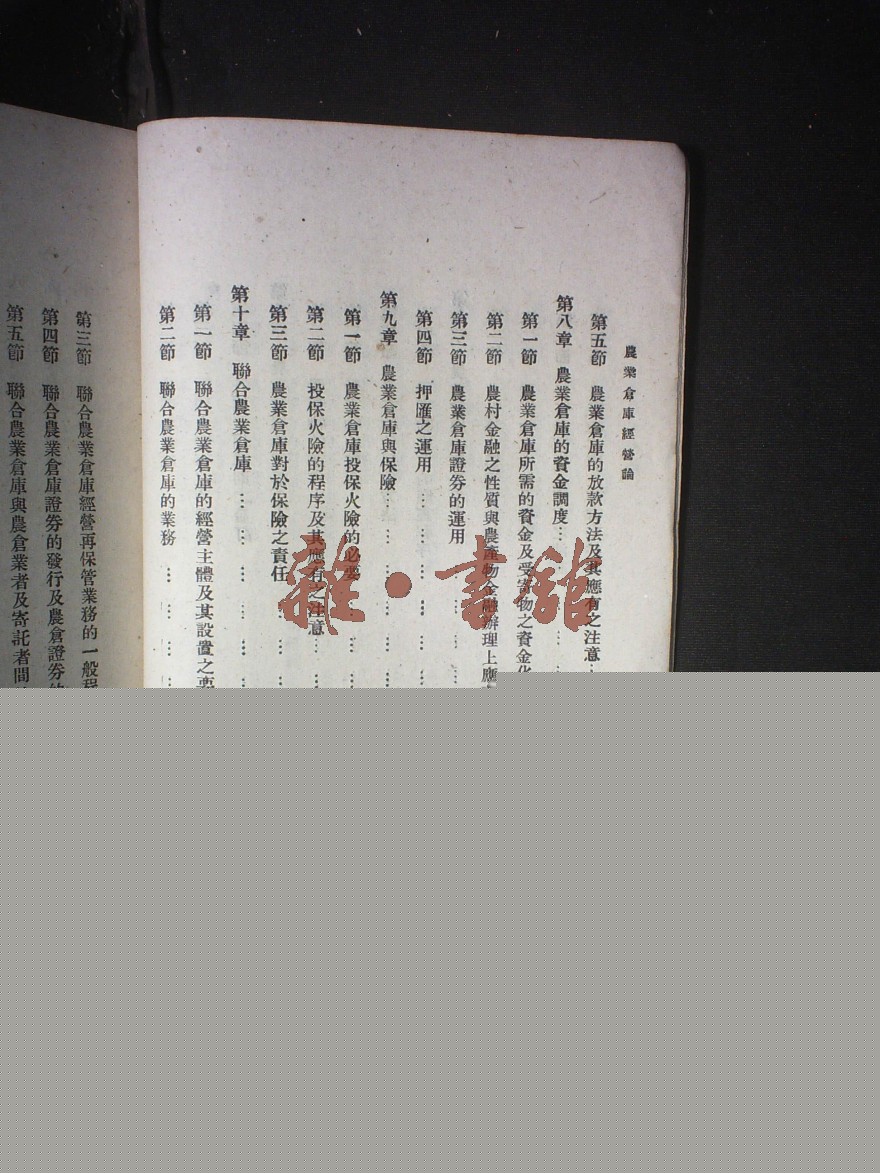 農業倉庫經營論
第五節 農業倉庫的放款方法及其應有之注意…
第八章 農業倉庫的資金調度…
第一節 農業倉庫所需的資金及受寄物之資金化
第二節 農村金融之性質與農產物金融辦理上應
第三節 農業倉庫證券的運用
第四節 押匯之運用
第九章 農業倉庫與保險…
第一節 農業倉庫投保火險的必要
第二節 投保火險的程序及其應有之注意…
第三節 農業倉庫對於保險之責任
第十章 聯合農業倉庫
第一節 聯合農業倉庫的經營主體及其設置之
第二節 聯合農業倉庫的業務
第三節 聯合農業倉庫經營再保管業務的一般程
第四節 聯合農業倉庫證券的發行及農倉證券的
第五節 聯合農業倉庫與農倉業者及寄託者間
雜·書館